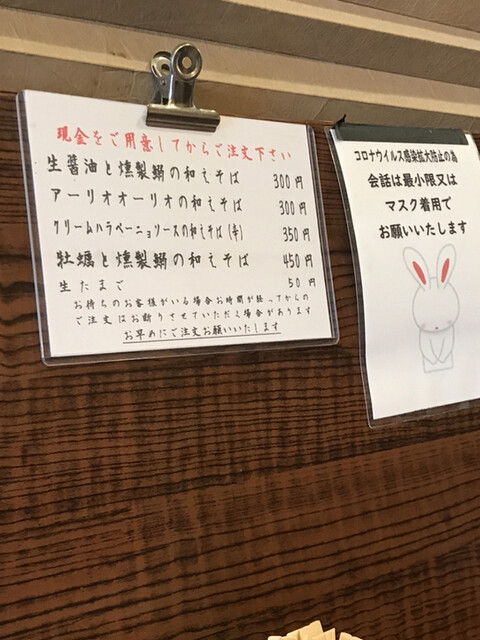 現金をご用意してからご注文下さい
生醤油と燻製鰯の和えそば 300円
アーリオオーリオの和えそば 300円
クリームハラペーニョソースの和えそば(辛) 350円
牡蠣と燻製鰯の和えそば 450円
生たまご 50円
お待ちのお客様がいる場合お時間が経ってからの
ご注文はお断りさせていただく場合があります
お早めにご注文お願いいたします
コロナウイルス感染拡大防止の為
会話は最小限又は
マスク着用で
お願いいたします